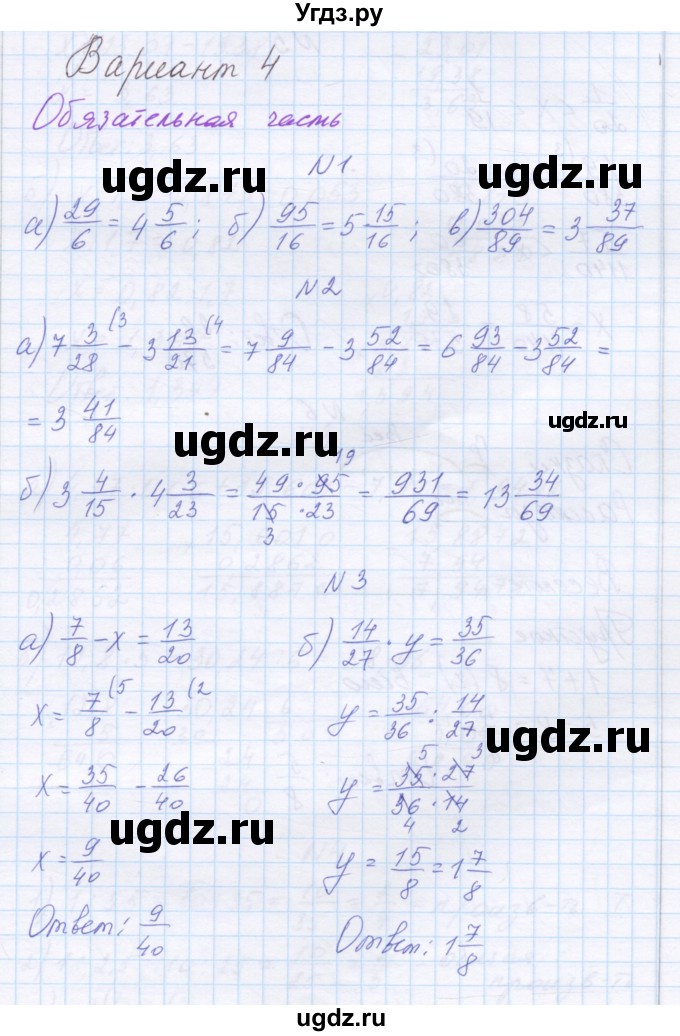 Угдз.ру
Вариант 4
Обязательная часть
ugdz.ru ugdz.ru
N1.
а) 29/6 = 4 5/6; б) 95/16 = 5 15/16; в) 304/89 = 3 37/89
N2
а) 7 3/28 (3 - 3 13/21 (4 = 7 9/84 - 3 52/84 = 6 93/84 - 3 52/84 =
= 3 41/84
ugdz.ru ugdz.ru
б) 3 4/15 · 4 3/23 = 49 · 95 19/15 3 · 23 = 931/69 = 13 34/69
N3
а) 7/8 - x = 13/20 б) 14/27 · y = 35/36
ugdz.ru
x = 7/8 (5 - 13/20 (2 y = 35/36 : 14/27
ugdz.ru
x = 35/40 - 26/40 y = 35 5 · 27 3/36 4 · 14 2
ugdz.ru
x = 9/40 y = 15/8 = 1 7/8
Ответ: 9/40 Ответ: 1 7/8
ugdz.ru
ugdz.ru